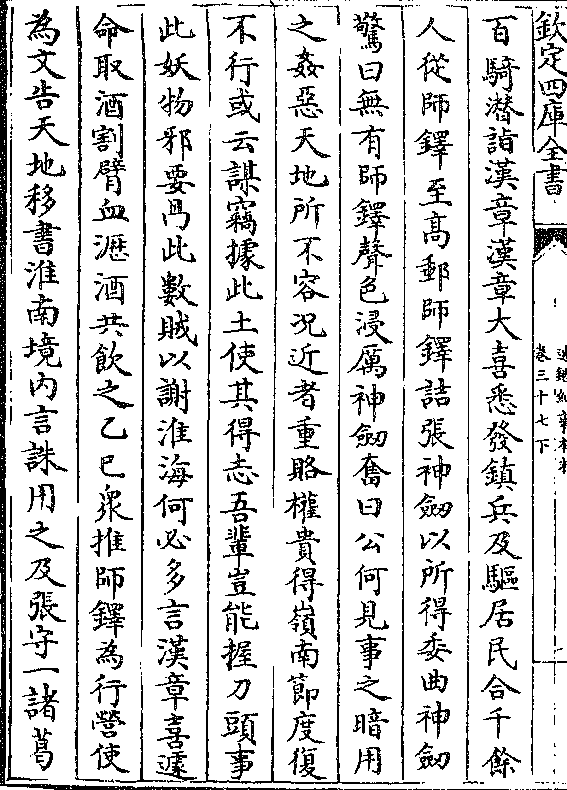 欽定四庫全書
卷三十七下
百騎潛詣漢章漢章大喜悉發鎮兵及驅居民合千餘
人從師鐸至高郵師鐸詰張神劔以所得委曲神劔
驚曰無有師鐸聲色浸厲神劔奮曰公何見事之暗用
之姦惡天地所不容况近者重賂權貴得嶺南節度復
不行或云謀竊據此土使其得志吾輩豈能握刀頭事
此妖物邪要冎此數賊以謝淮海何必多言漢章喜遽
命取酒割臂血瀝酒共飲之乙巳衆推師鐸為行營使
為文告天地移書淮南境内言誅用之及張守一諸葛